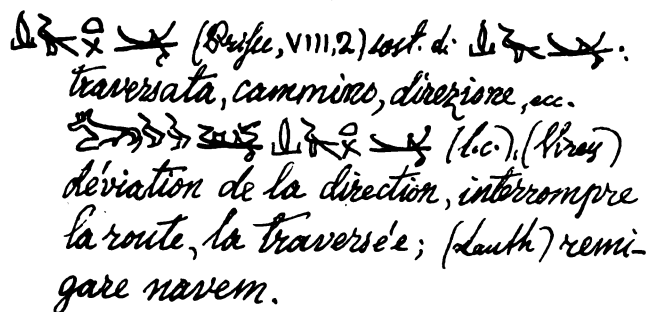 (Prisse, VIII, 2) sost. di :
traversata, cammino, direzione, ecc.
(l.c.), (Virey)
déviation de la direction, interrompre
la route, la traversée; (Lauth) remi-
gare navem.